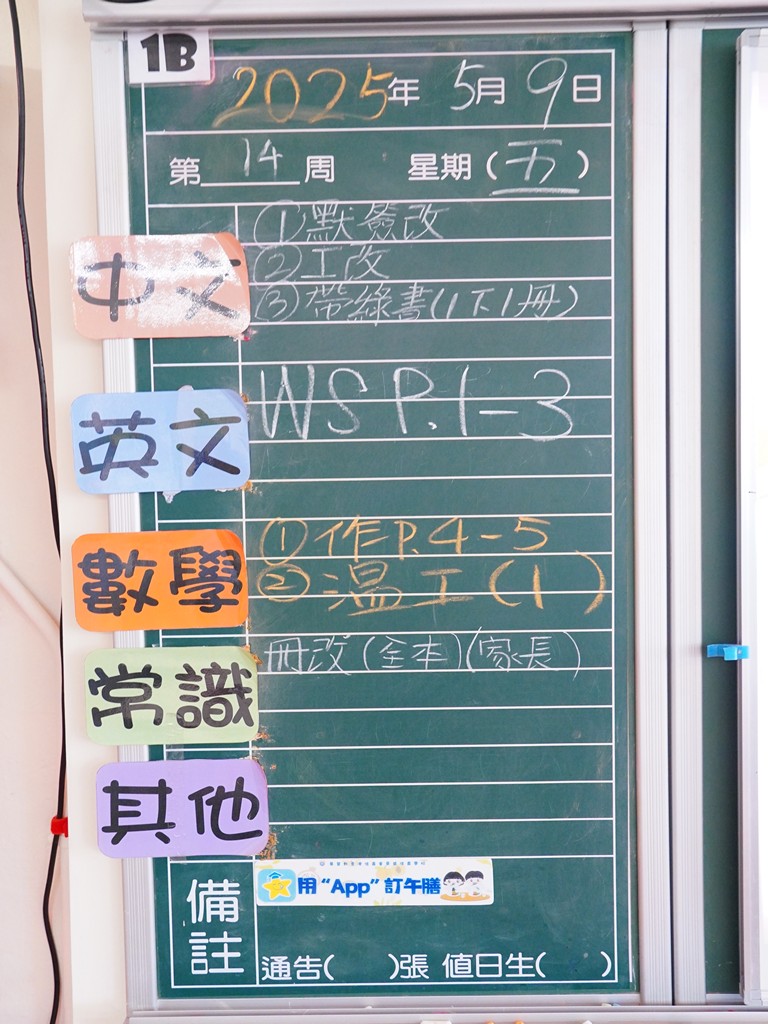 1B
2025年 5月 9日
第 14 周 星期(五)
中文
①默簽改
②工改
③帶綠書(1下1冊)
英文
WS P.1-3
數學
①作P.4-5
②温工(1)
常識
冊改(全本)(家長)
其他
備註
用“App”訂午膳
通告( )張 值日生( )